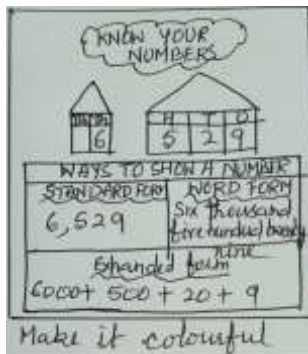 KNOW YOUR
NUMBERS
Th
H T O
6 5 2 9
WAYS TO SHOW A NUMBER
STANDARD FORM WORD FORM
6,529 Six thousand
five hundred twenty
nine
Expanded form
6000+ 500 + 20 + 9
Make it colourful